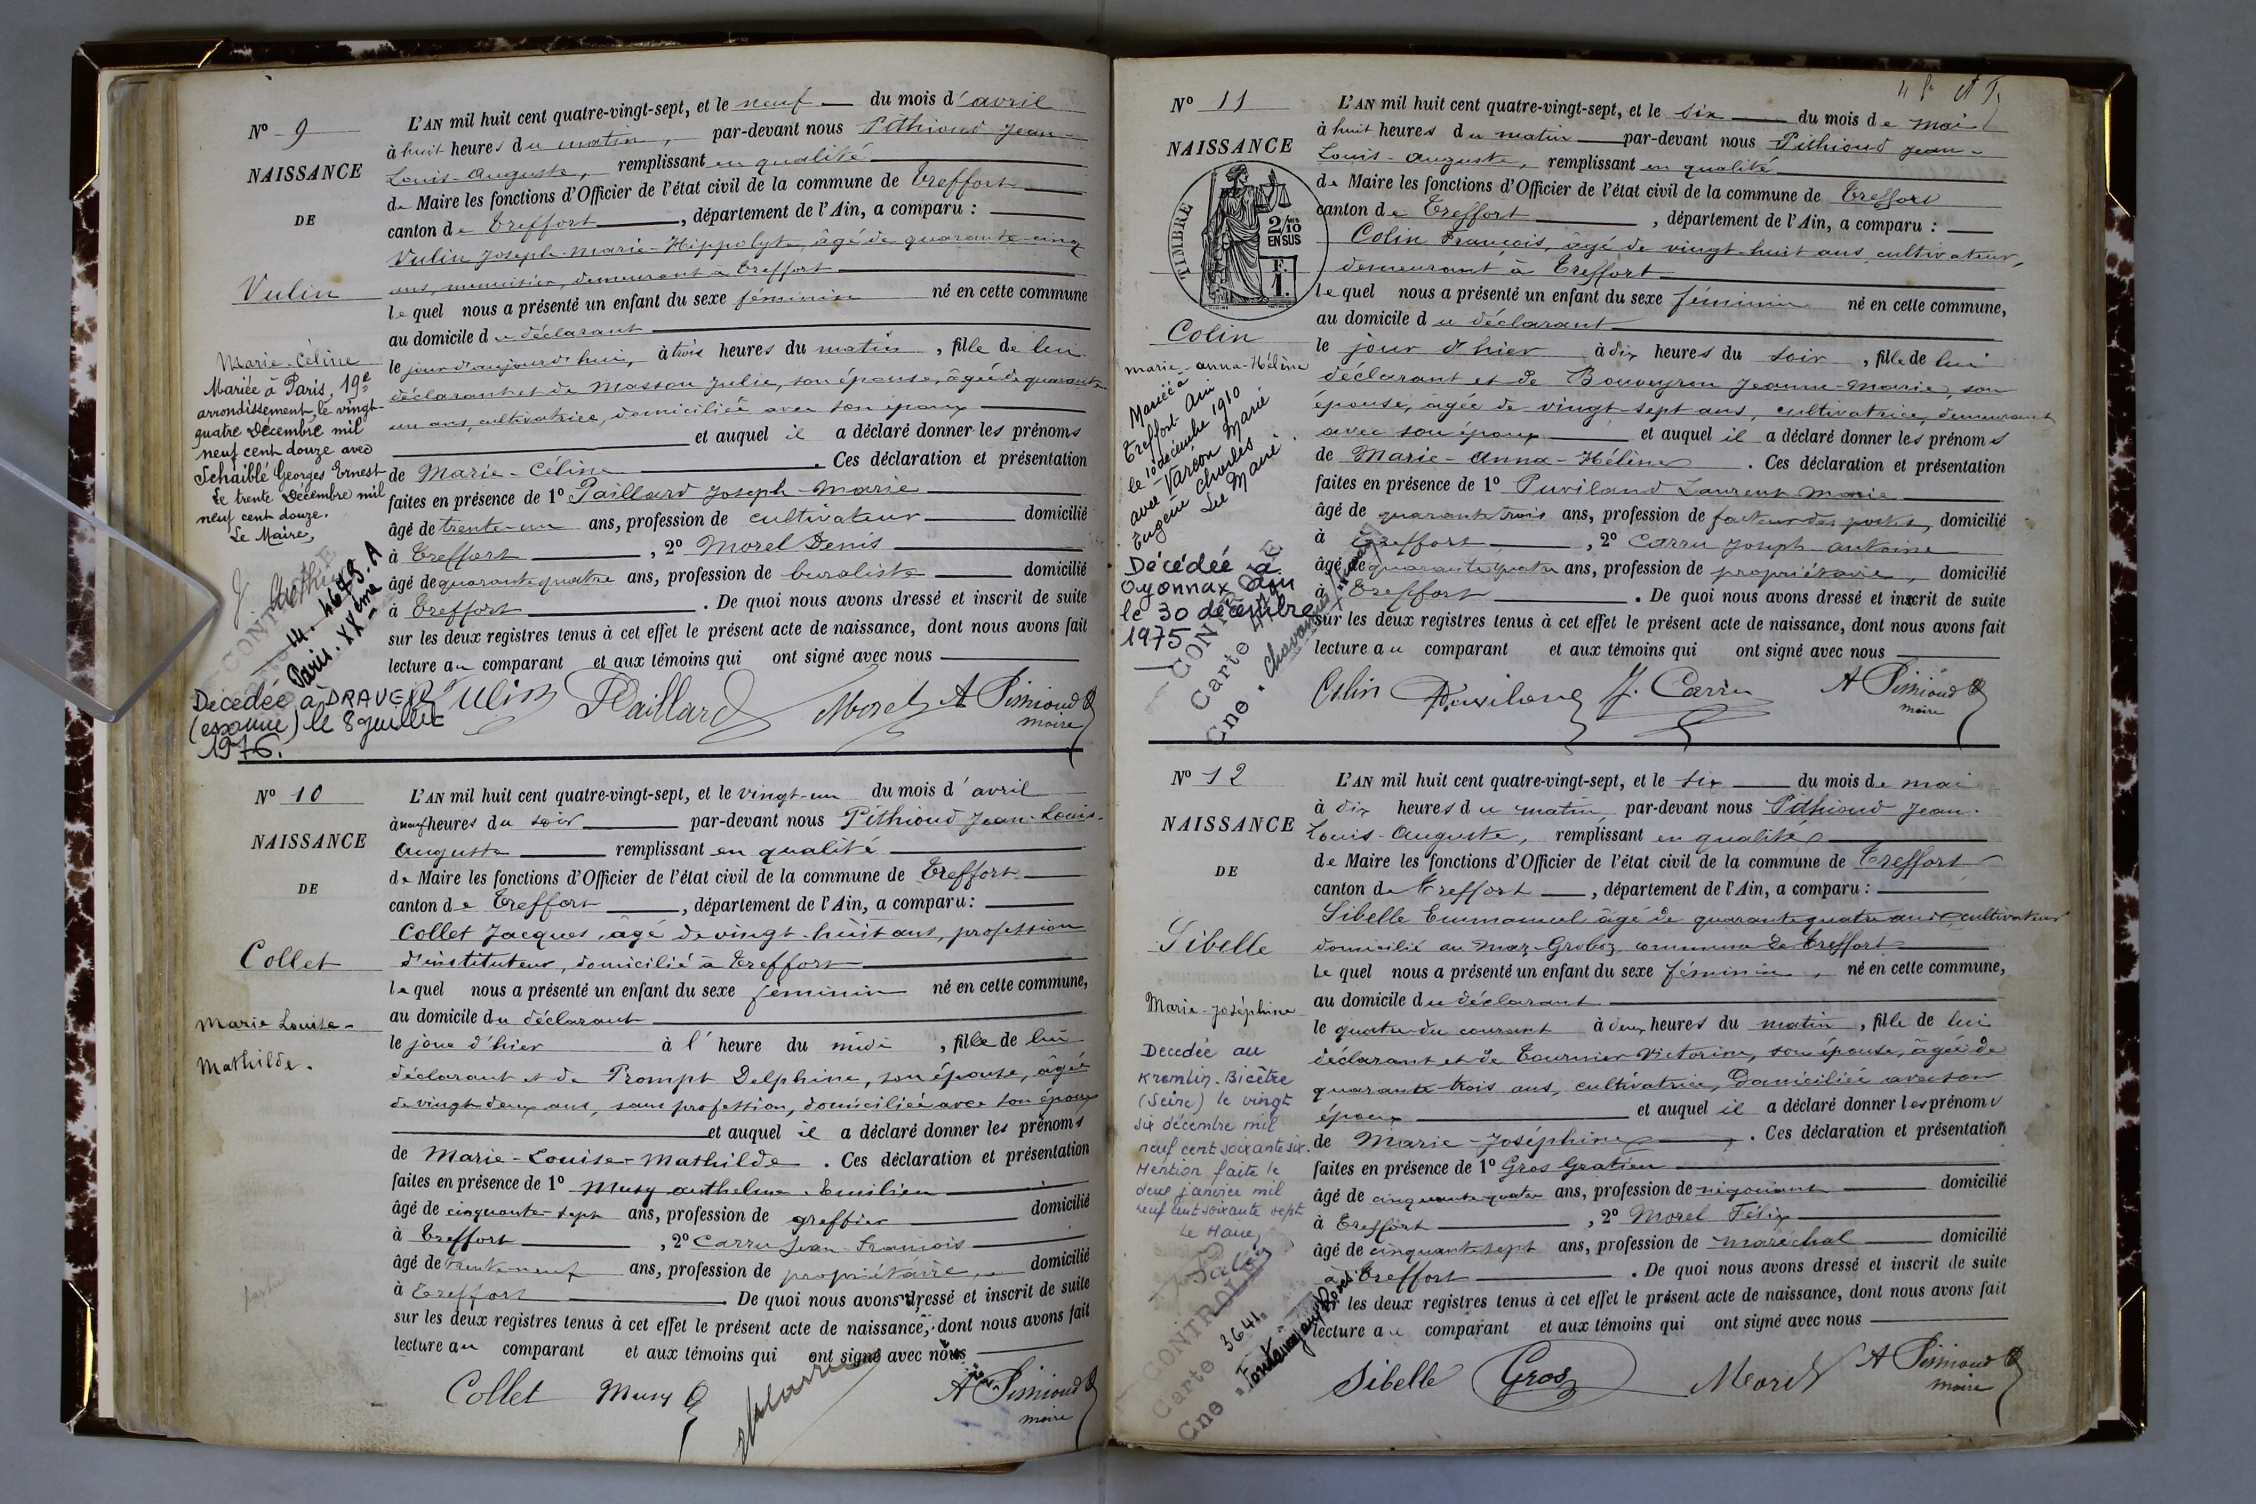 N° 9
NAISSANCE
DE
Vulin
Marie-Céline
Mariée à Paris, 19e
arrondissement, le vingt-
quatre Décembre mil
neuf cent douze avec
Schaiblé Georges Ernest
Le trente Décembre mil
neuf cent douze.
Le Maire,
14. 4675. A
Paris. XXème
Décédée à DRAVEIL
(essonne) le 8 juillet
1976.
L'AN mil huit cent quatre-vingt-sept, et le neuf du mois d'avril
à huit heures du matin, par-devant nous Pithioud Jean-
Louis-Auguste, remplissant en qualité
de Maire les fonctions d'Officier de l'état civil de la commune de Treffort
canton de Treffort, département de l'Ain, a comparu :
Vulin Joseph-Marie-Hippolyte, âgé de quarante-cinq
ans, menuisier, demeurant à Treffort
lequel nous a présenté un enfant du sexe féminin né en cette commune
au domicile du déclarant
le jour d'aujourd'hui, à trois heures du matin, fille de lui
déclarant et de Masson Julie, son épouse, âgée de quarante-
un ans, cultivatrice, domiciliée avec son époux
et auquel il a déclaré donner les prénoms
de Marie-Céline. Ces déclaration et présentation
faites en présence de 1° Paillard Joseph-Marie
âgé de trente-un ans, profession de cultivateur domicilié
à Treffort, 2° Morel Denis
âgé de quarante quatre ans, profession de buraliste domicilié
à Treffort. De quoi nous avons dressé et inscrit de suite
sur les deux registres tenus à cet effet le présent acte de naissance, dont nous avons fait
lecture au comparant et aux témoins qui ont signé avec nous
Vulin Paillard Morel A Pithioud
maire
N° 10
NAISSANCE
DE
Collet
Marie Louise-
Mathilde.
L'AN mil huit cent quatre-vingt-sept, et le vingt-un du mois d'avril
à neuf heures du soir par-devant nous Pithioud Jean-Louis-
Auguste remplissant en qualité
de Maire les fonctions d'Officier de l'état civil de la commune de Treffort
canton de Treffort, département de l'Ain, a comparu :
Collet Jacques, âgé de vingt-huit ans, profession
d'instituteur, domicilié à Treffort
lequel nous a présenté un enfant du sexe féminin né en cette commune,
au domicile du déclarant
le jour d'hier à l'heure du midi, fille de lui
déclarant et de Prompt Delphine, son épouse, âgée
de vingt-deux ans, sans profession, domiciliée avec son époux
et auquel il a déclaré donner les prénoms
de Marie-Louise-Mathilde. Ces déclaration et présentation
faites en présence de 1° Musy Anthelme Emilien
âgé de cinquante-sept ans, profession de greffier domicilié
à Treffort, 2° Carru Jean-François
âgé de trente neuf ans, profession de propriétaire, domicilié
à Treffort. De quoi nous avons dressé et inscrit de suite
sur les deux registres tenus à cet effet le présent acte de naissance, dont nous avons fait
lecture au comparant et aux témoins qui ont signé avec nous
Collet Musy A Pithioud
maire
N° 11
NAISSANCE
TIMBRE
2/10
EN SUS
F.
1.
Colin
Marie-Anna-Hélène
Mariée à
Treffort Ain
le 10 décembre 1910
avec Varéon Marie
Eugène Charles.
Le Maire
Décédée à
Oyonnax Ain
le 30 décembre
1975
CONTROLE
Carte
Cne.
L'AN mil huit cent quatre-vingt-sept, et le six du mois de mai
à huit heures du matin par-devant nous Pithioud Jean-
Louis-Auguste, remplissant en qualité
de Maire les fonctions d'Officier de l'état civil de la commune de Treffort
canton de Treffort, département de l'Ain, a comparu :
Colin François, âgé de vingt-huit ans, cultivateur,
demeurant à Treffort
lequel nous a présenté un enfant du sexe féminin né en cette commune,
au domicile du déclarant
le jour d'hier à dix heures du soir, fille de lui
déclarant et de Bouveyron Jeanne-Marie, son
épouse, âgée de vingt-sept ans, cultivatrice, demeurant
avec son époux et auquel il a déclaré donner les prénoms
de Marie-Anna-Hélène. Ces déclaration et présentation
faites en présence de 1° Puviland Laurent Marie
âgé de quarante trois ans, profession de facteur des postes, domicilié
à Treffort, 2° Carru Joseph Antoine
âgé de quarante quatre ans, profession de propriétaire, domicilié
à Treffort. De quoi nous avons dressé et inscrit de suite
sur les deux registres tenus à cet effet le présent acte de naissance, dont nous avons fait
lecture au comparant et aux témoins qui ont signé avec nous
Colin Puviland J. Carru A Pithioud
maire
N° 12
NAISSANCE
DE
Sibelle
Marie-Joséphine
Décédée au
Kremlin-Bicêtre
(Seine) le vingt
six décembre mil
neuf cent soixante six.
Mention faite le
deux janvier mil
neuf cent soixante sept
Le Maire,
CONTROLE
Carte 3641
Cne.
L'AN mil huit cent quatre-vingt-sept, et le six du mois de mai
à dix heures du matin par-devant nous Pithioud Jean-
Louis-Auguste, remplissant en qualité
de Maire les fonctions d'Officier de l'état civil de la commune de Treffort
canton de Treffort, département de l'Ain, a comparu :
Sibelle Emmanuel âgé de quarante quatre ans cultivateur
domicilié au Maz-Groboz, commune de Treffort
lequel nous a présenté un enfant du sexe féminin, né en cette commune,
au domicile du déclarant
le quatre du courant à deux heures du matin, fille de lui
déclarant et de Tournier Victorine, son épouse, âgée de
quarante-trois ans, cultivatrice, domiciliée avec son
époux et auquel il a déclaré donner les prénoms
de Marie-Joséphine. Ces déclaration et présentation
faites en présence de 1° Gros Gratien
âgé de cinquante quatre ans, profession de négociant domicilié
à Treffort, 2° Morel Félix
âgé de cinquante sept ans, profession de maréchal domicilié
à Treffort. De quoi nous avons dressé et inscrit de suite
les deux registres tenus à cet effet le présent acte de naissance, dont nous avons fait
lecture au comparant et aux témoins qui ont signé avec nous
Sibelle Gros Morel A Pithioud
maire